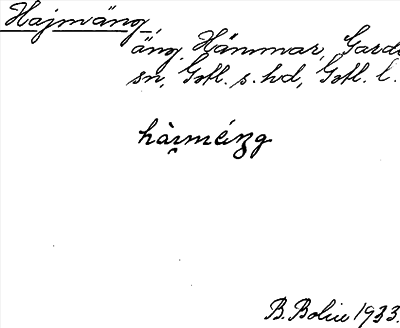 Hajmäng,
äng, Hammar, Garda
sn, Gotl. s. hd, Gotl. l.
hàı̯mäng
B. Bolin 1933.